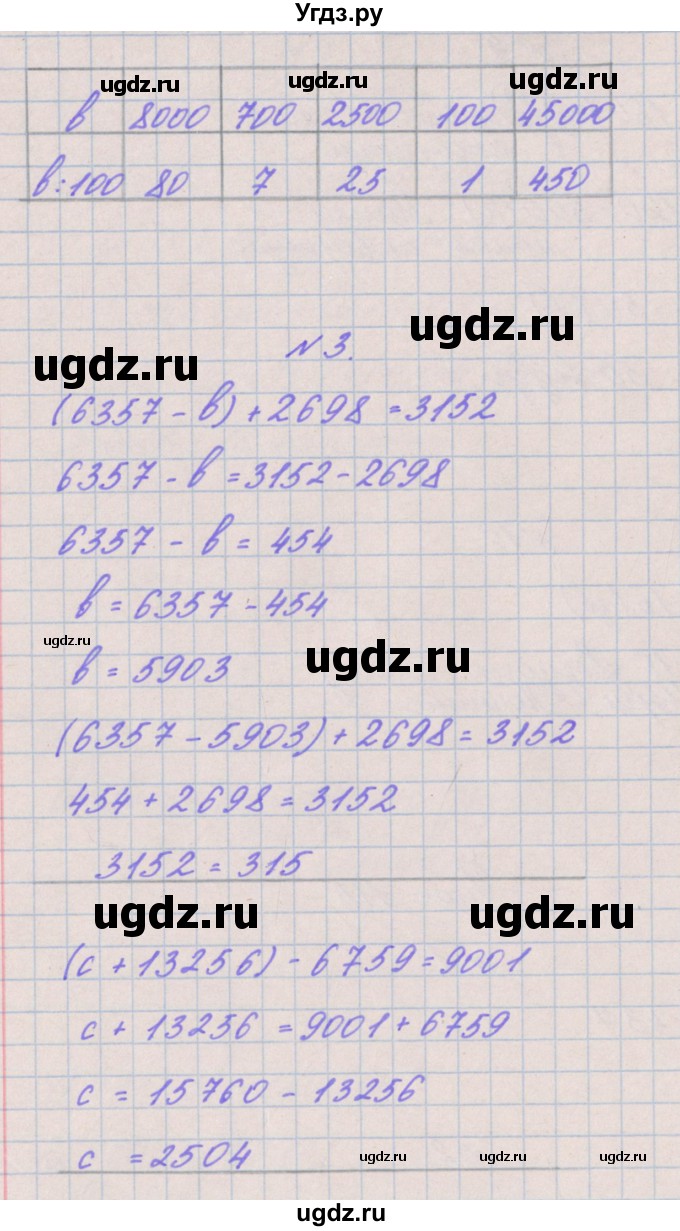 Угдз.ру
ugdz.ru ugdz.ru ugdz.ru
в 8000 700 2500 100 45000
в:100 80 7 25 1 450
ugdz.ru
№ 3.
ugdz.ru
(6357 - в) + 2698 = 3152
6357 - в = 3152 - 2698
6357 - в = 454
в = 6357 - 454
ugdz.ru
ugdz.ru
в = 5903
(6357 - 5903) + 2698 = 3152
454 + 2698 = 3152
3152 = 315
ugdz.ru ugdz.ru
(с + 13256) - 6759 = 9001
с + 13256 = 9001 + 6759
с = 15760 - 13256
с = 2504
ugdz.ru ugdz.ru ugdz.ru
ugdz.ru